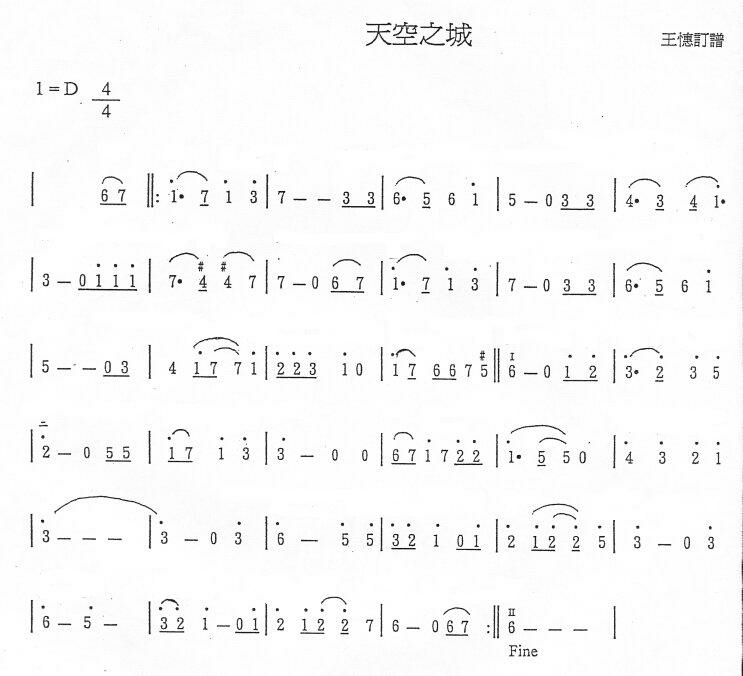 天空之城
王憓訂譜
1=D 4/4
| 6 7 ‖: 1• 7 1 3 | 7 – – 3 3 | 6• 5 6 1 | 5 – 0 3 3 | 4• 3 4 1•
| 3 – 0 1 1 1 | 7• #4 #4 7 | 7 – 0 6 7 | 1• 7 1 3 | 7 – 0 3 3 | 6• 5 6 1
| 5 – – 0 3 | 4 1 7 7 1 | 2 2 3 1 0 | 1 7 6 6 7 #5 ‖ I 6 – 0 1 2 | 3• 2 3 5
| 2 – 0 5 5 | 1 7 1 3 | 3 – 0 0 | 6 7 1 7 2 2 | 1• 5 5 0 | 4 3 2 1
| 3 – – – | 3 – 0 3 | 6 – 5 5 | 3 2 1 0 1 | 2 1 2 2 5 | 3 – 0 3
| 6 – 5 – | 3 2 1 – 0 1 | 2 1 2 2 7 | 6 – 0 6 7 :‖ II 6 – – – |
Fine